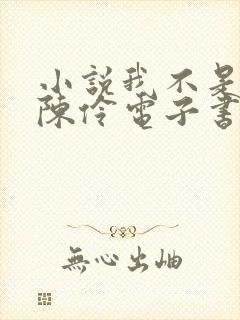 小說我不是
陳伶電子書
無心出岫